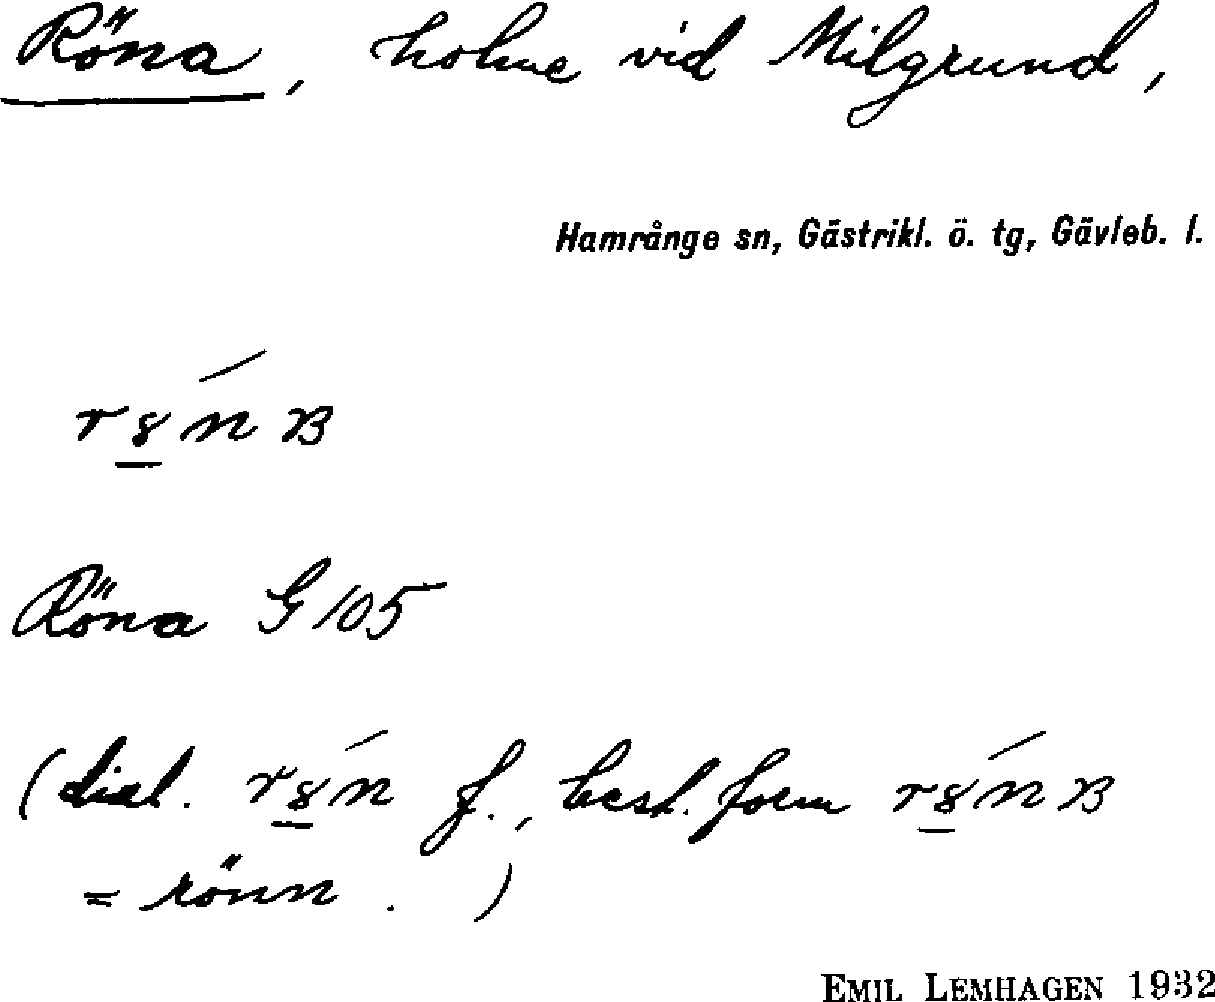 Röna, holme vid Milgrund,
Hamrånge sn, Gästrikl. ö. tg, Gävleb. l.
Röna G 105
(dial. f., best. form
= rönn. )
EMIL LEMHAGEN 1932